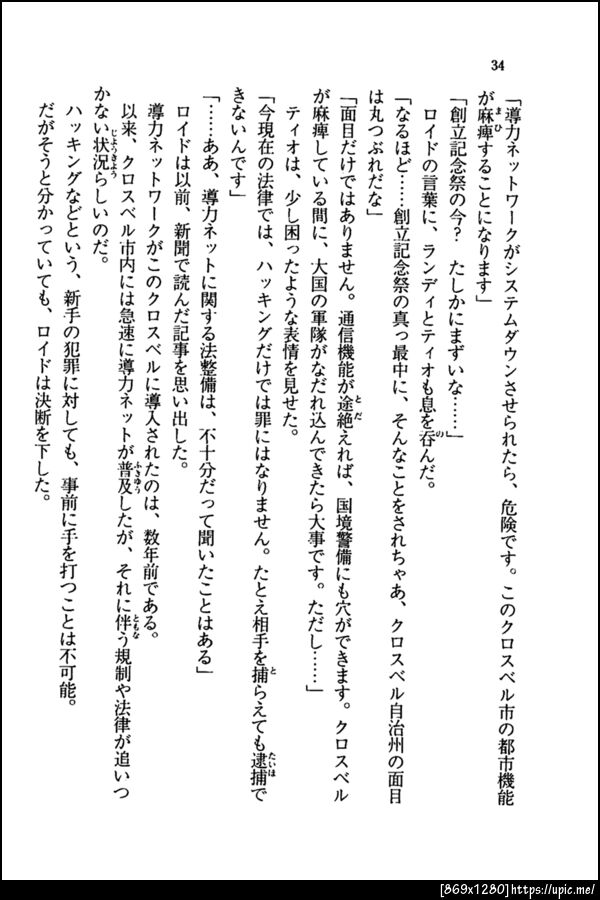 34
「導力ネットワークがシステムダウンさせられたら、危険です。このクロスベル市の都市機能
が麻痺することになります」
「創立記念祭の今？　たしかにまずいな……」
ロイドの言葉に、ランディとティオも息を呑んだ。
「なるほど……創立記念祭の真っ最中に、そんなことをされちゃあ、クロスベル自治州の面目
は丸つぶれだな」
「面目だけではありません。通信機能が途絶えれば、国境警備にも穴ができます。クロスベル
が麻痺している間に、大国の軍隊がなだれ込んできたら大事です。ただし……」
ティオは、少し困ったような表情を見せた。
「今現在の法律では、ハッキングだけでは罪にはなりません。たとえ相手を捕らえても逮捕で
きないんです」
「……ああ、導力ネットに関する法整備は、不十分だって聞いたことはある」
ロイドは以前、新聞で読んだ記事を思い出した。
導力ネットワークがこのクロスベルに導入されたのは、数年前である。
以来、クロスベル市内には急速に導力ネットが普及したが、それに伴う規制や法律が追いつ
かない状況らしいのだ。
ハッキングなどという、新手の犯罪に対しても、事前に手を打つことは不可能。
だがそうと分かっていても、ロイドは決断を下した。
[869x1280]https://upic.me/